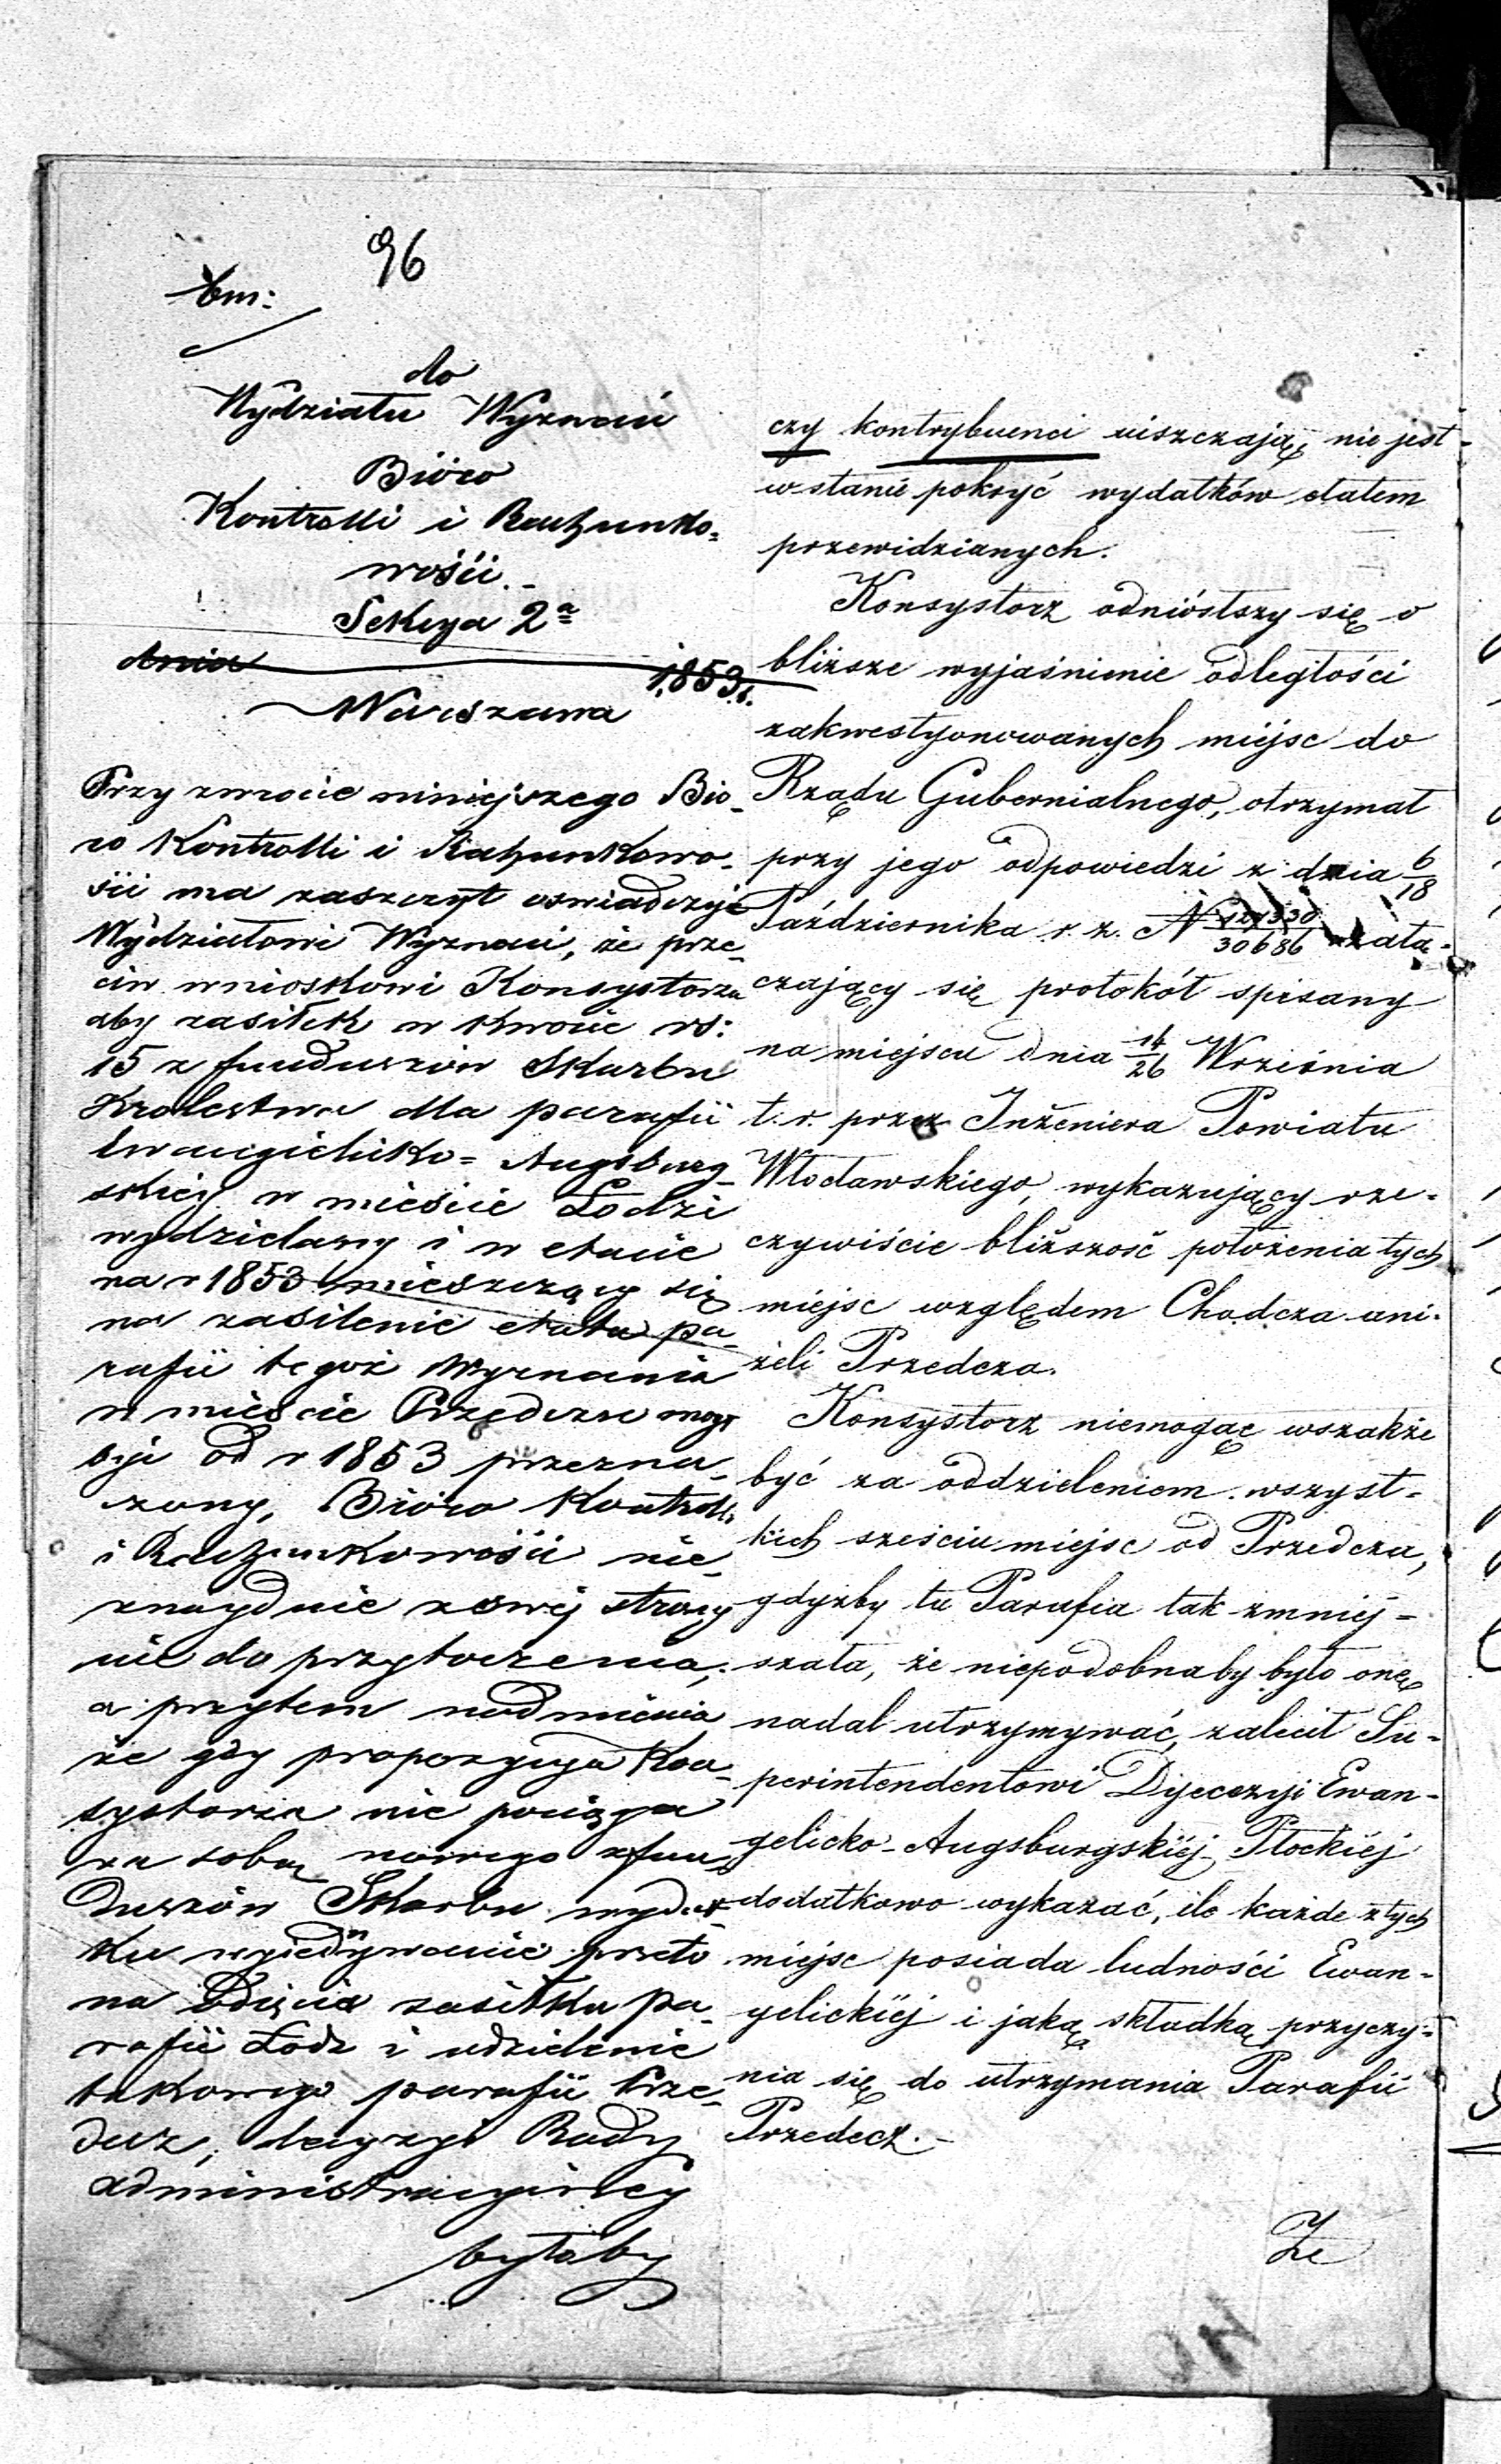 96
do
Wydziału Wyznań
Bióro
Kontrolli i Rachunko=
wości.
Sekcya 2a
dnia 1853 r.
Warszawa
Przy zwrocie niniejszego Bió-
ro Kontrolli i Rachunkowo-
ści ma zaszczyt oświadczyć
Wydziałowi Wyznań, że prze-
ciw wnioskowi Konsystorza
aby zasiłek w kwocie rs:
15 z funduszów Skarbu
Królestwa dla parafii
Ewangielicko= Augsburg-
skiej w mieście Łodzi
wydzielany i w etacie
na r 1853 mieszczący się
na zasilenie etatu pa-
rafii tegoż Wyznania
w mieście Przedczu mógł
być od r 1853 przezna-
czony, Bióro Kontrolli
i Rachunkowości nie-
znayduie z swej strony
nic do przytoczenia;
a przytem nadmienia
że gdy propozycya Kon-
systorza nie pociąga
za sobą nowego z fun-
duszów Skarbu wydat-
ku przeto
na odjęcie zasiłku pa-
rafii Łodz i udzielenie
takowego parafii Prze-
decz, decyzyi Rady
Administracyjney
byłaby
czy kontrybuenci uiszczają, nie jest
w stanie pokryć wydatków etatem
przewidzianych.
Konsystorz odniósłszy się o
bliższe wyjaśnienie odległości
zakwestyonowanych miejsc do
Rządu Gubernialnego, otrzymał
przy jego odpowiedzi z dnia 6/18
Października r. z. N /30686 załą-
czający się protokół spisany
na miejscu dnia 14/26 Września
t. r. przez Inżeniera Powiatu
Włocławskiego, wykazujący rze-
czywiście bliższość położenia tych
miejsc względem Chodcza ani-
żeli Przedcza.
Konsystorz niemogąc wszakże
być za oddzieleniem wszyst-
kich sześciu miejsc od Przedcza,
gdyżby ta Parafia tak zmniej-
szała, że niepodobnaby było onę
nadal utrzymywać, zalecił Su-
perintendentowi Dyecezyi Ewan-
gelicko-Augsburgskiéj Płockiéj
dodatkowo wykazać, ile każde z tych
miejsc posiada ludności Ewan-
gelickiéj i jaką składką przyczy-
nia się do utrzymania Parafii
Przedecz.-
Ze